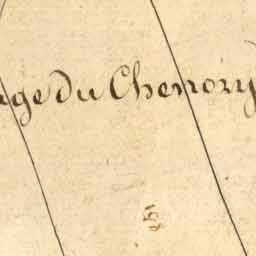 age du Chenory